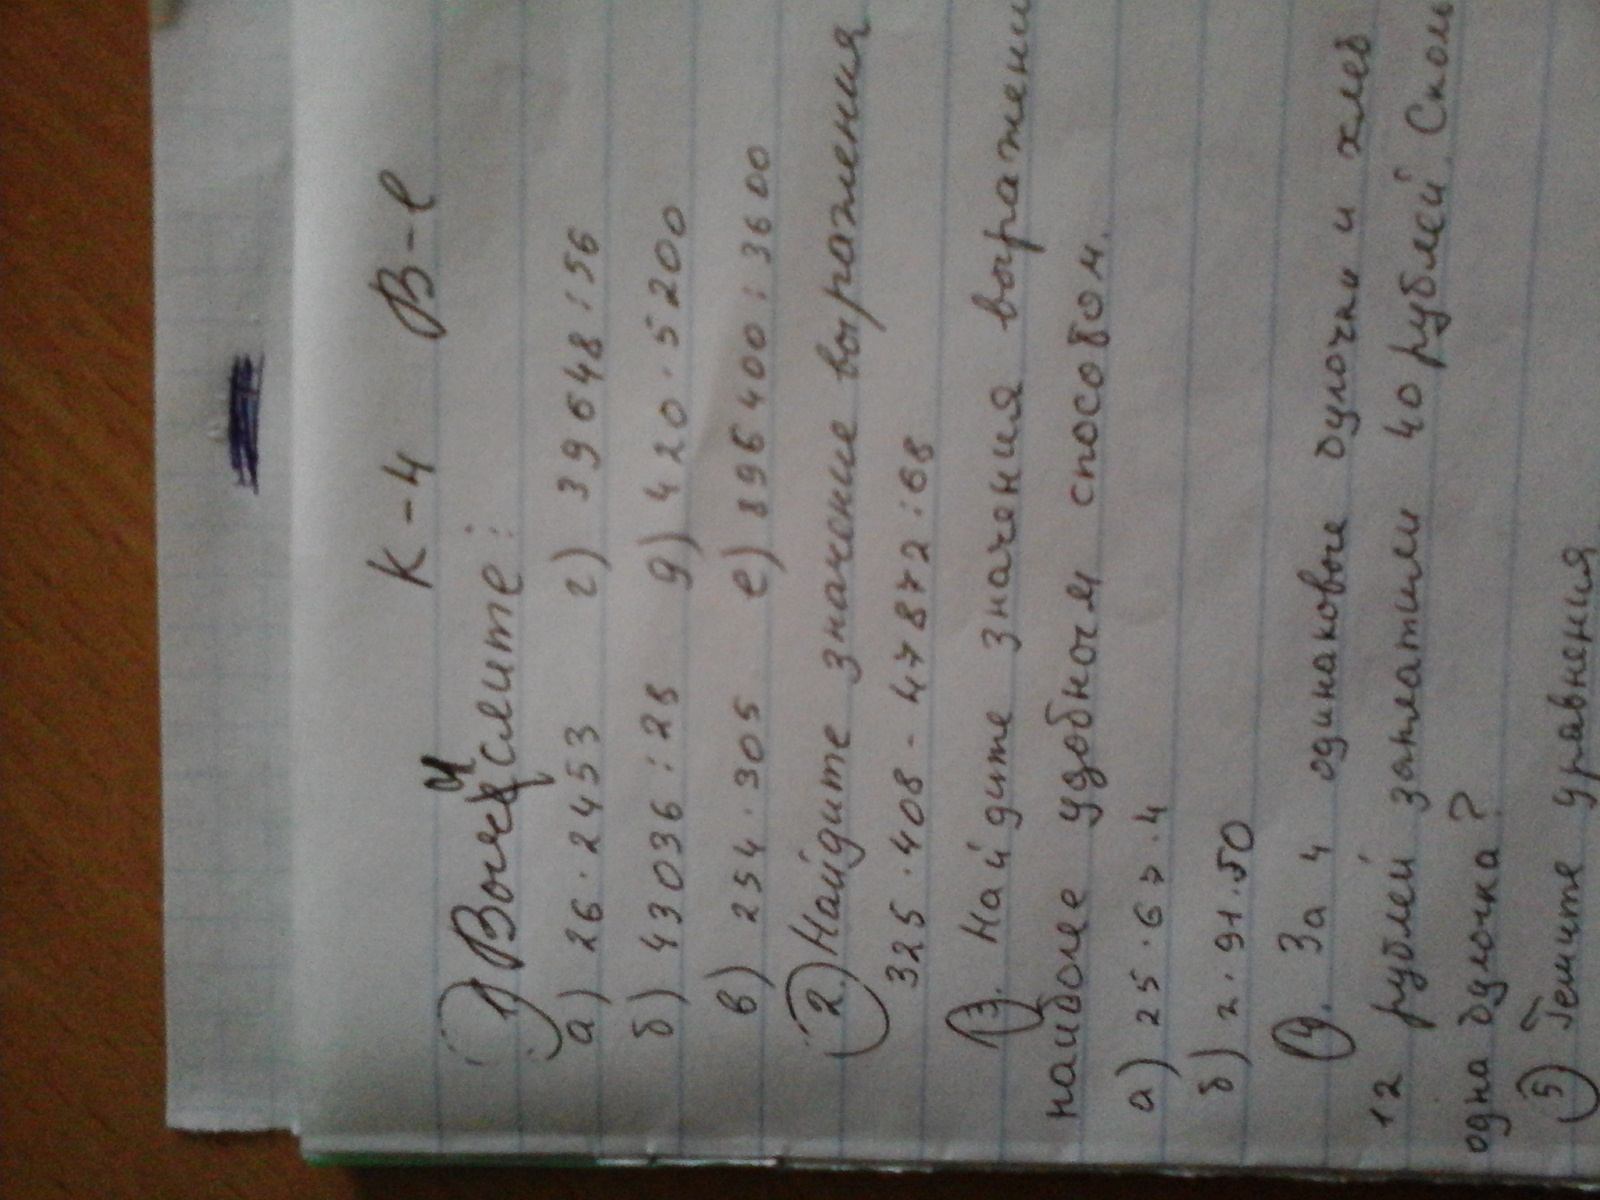 К-4 В-1
1) Вычислите:
а) 26·2453 г) 39648:56
б) 43036:28 д) 420·5200
в) 254·305 е) 896400:3600
2) Найдите значение выражения
325·408-47872:68
3. Найдите значения выражени
наиболе удобным способом.
а) 25·67·4
б) 2·91·50
4. За 4 одинаковые булочки и хлеб
12 рублей заплатили 40 рублей. Сколь
одна булочка?
5) Решите уравнения